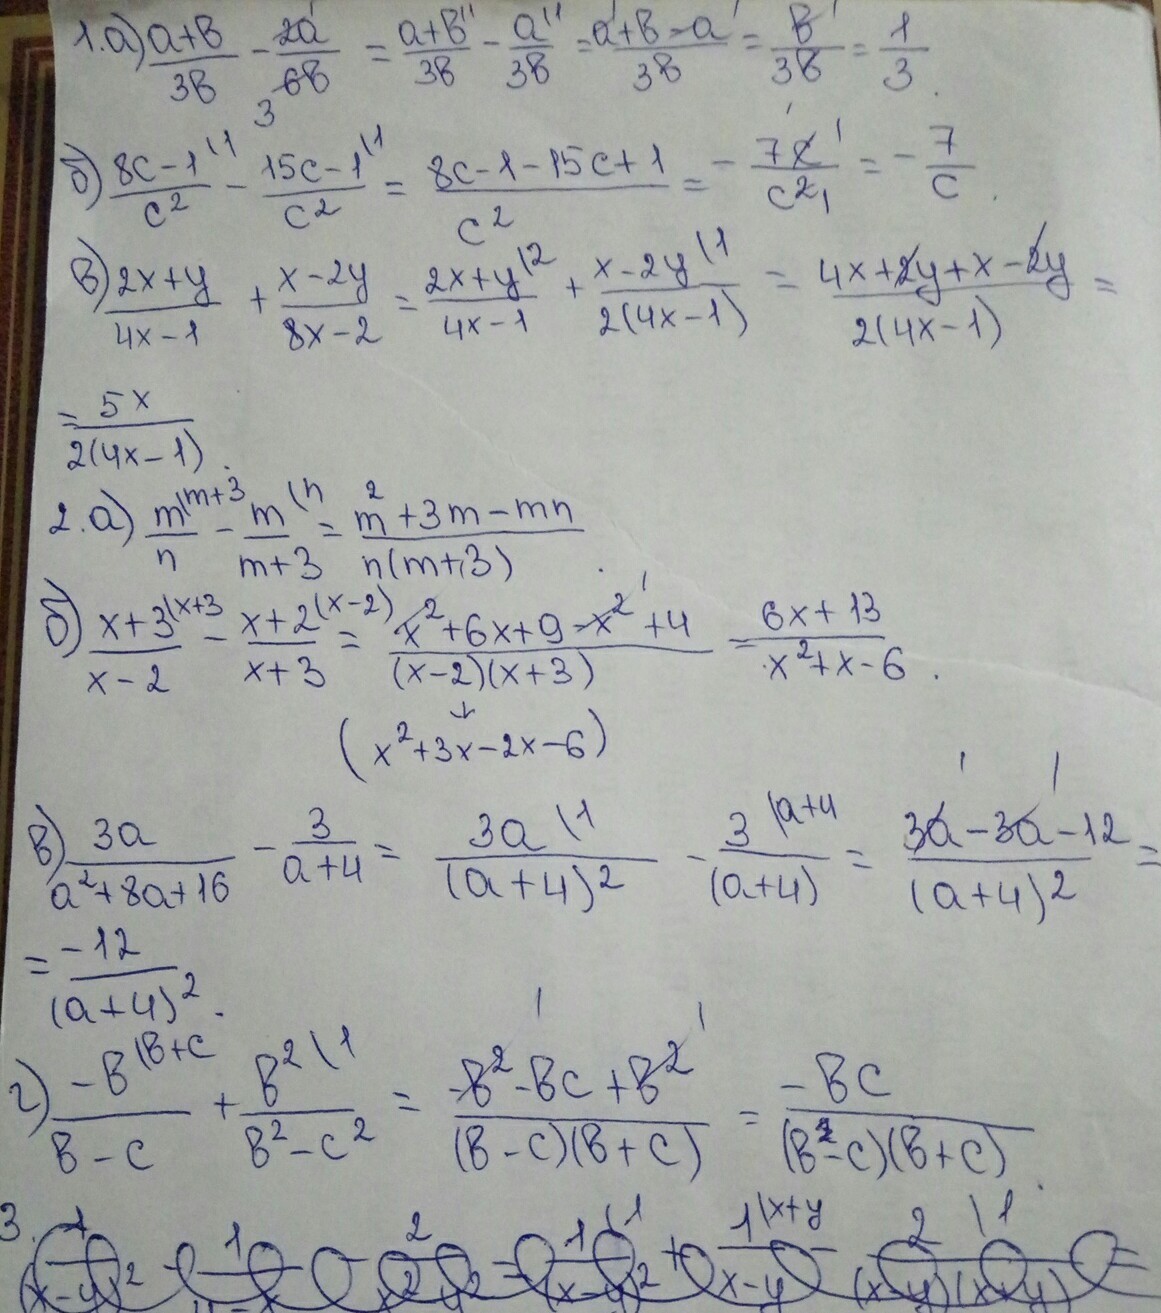 1.а) (a+в)/(3в) - (2a)/(6в) = (a+в\1)/(3в) - (a\1)/(3в) = (a+в-a)/(3в) = в/(3в) = 1/3.
б) (8c-1\1)/c² - (15c-1\1)/c² = (8c-1-15c+1)/c² = - (7c)/c² = - 7/c.
в) (2x+y)/(4x-1) + (x-2y)/(8x-2) = (2x+y\2)/(4x-1) + (x-2y\1)/(2(4x-1)) = (4x+2y+x-2y)/(2(4x-1)) =
= 5x/(2(4x-1)).
2.а) (m\m+3)/n - (m\n)/(m+3) = (m²+3m-mn)/(n(m+3)).
б) (x+3\x+3)/(x-2) - (x+2(x-2))/(x+3) = (x²+6x+9-x²+4)/((x-2)(x+3)) = (6x+13)/(x²+x-6).
↓
(x²+3x-2x-6)
в) 3a/(a²+8a+16) - 3/(a+4) = (3a\1)/(a+4)² - (3\a+4)/(a+4) = (3a-3a-12)/(a+4)² =
= -12/(a+4)².
г) (-в\в+c)/(в-c) + (в²\1)/(в²-c²) = (-в²-вc+в²)/((в-c)(в+c)) = -вc/((в-c)(в+c)).
3.